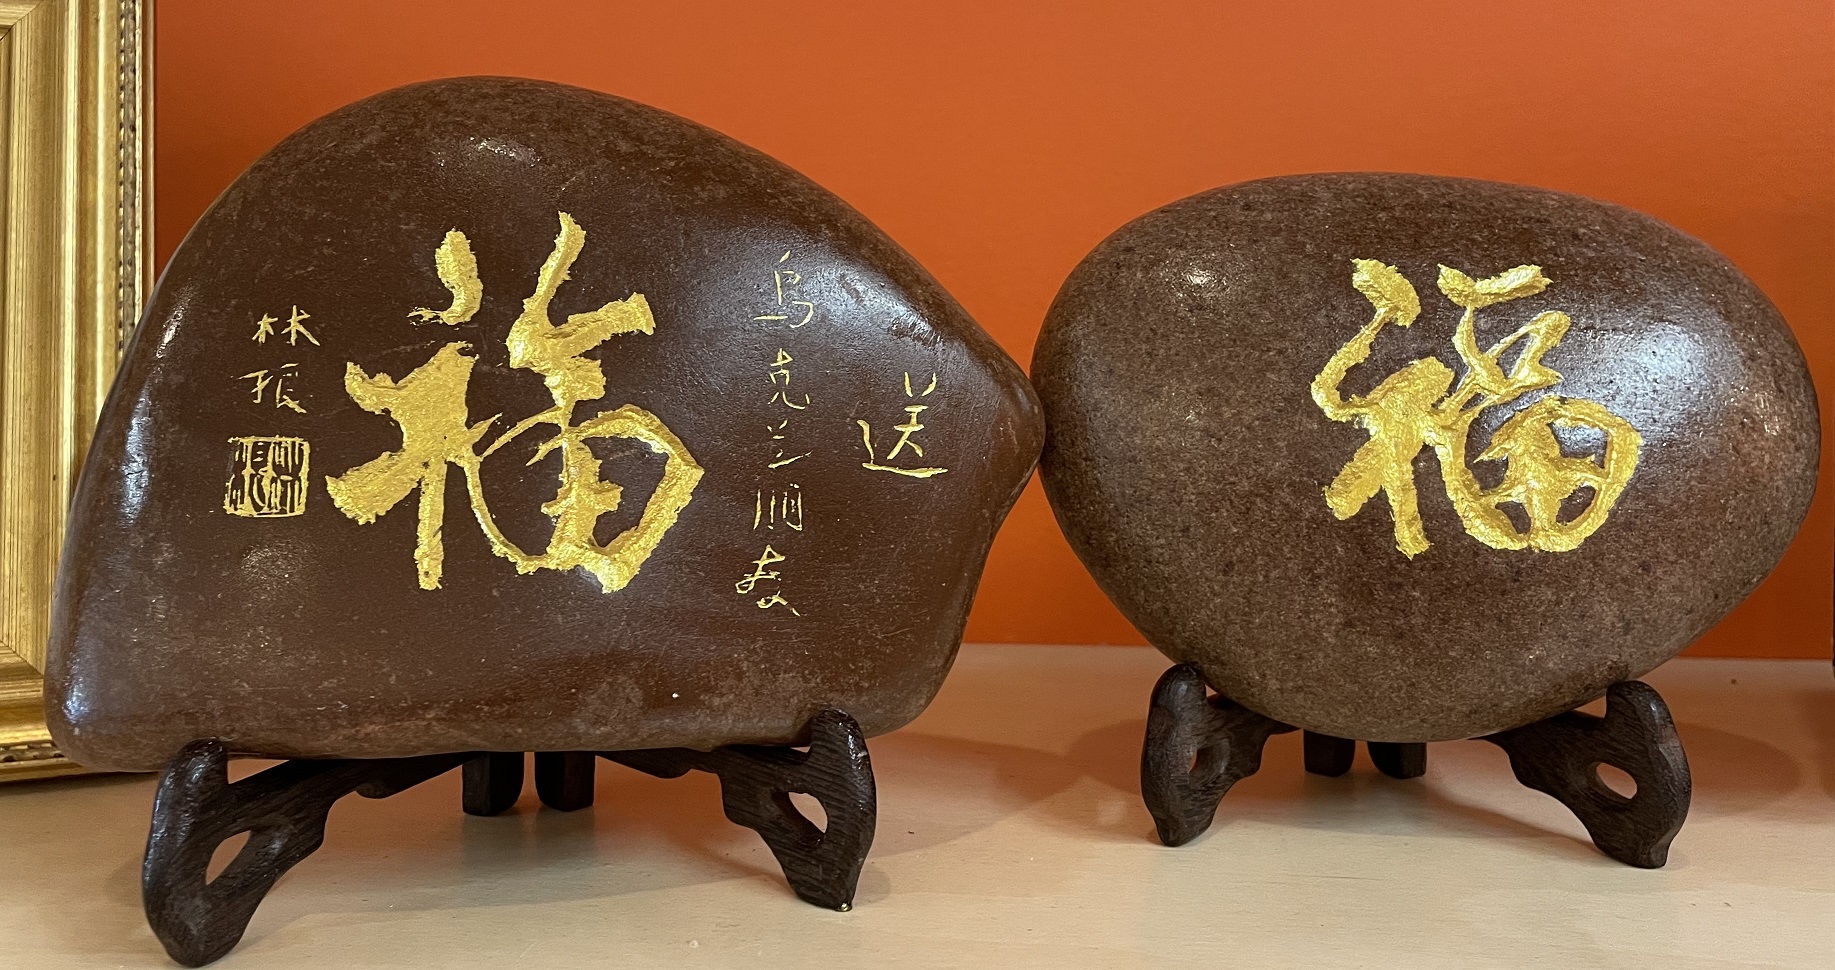 送
乌克兰朋友
福
林振
福